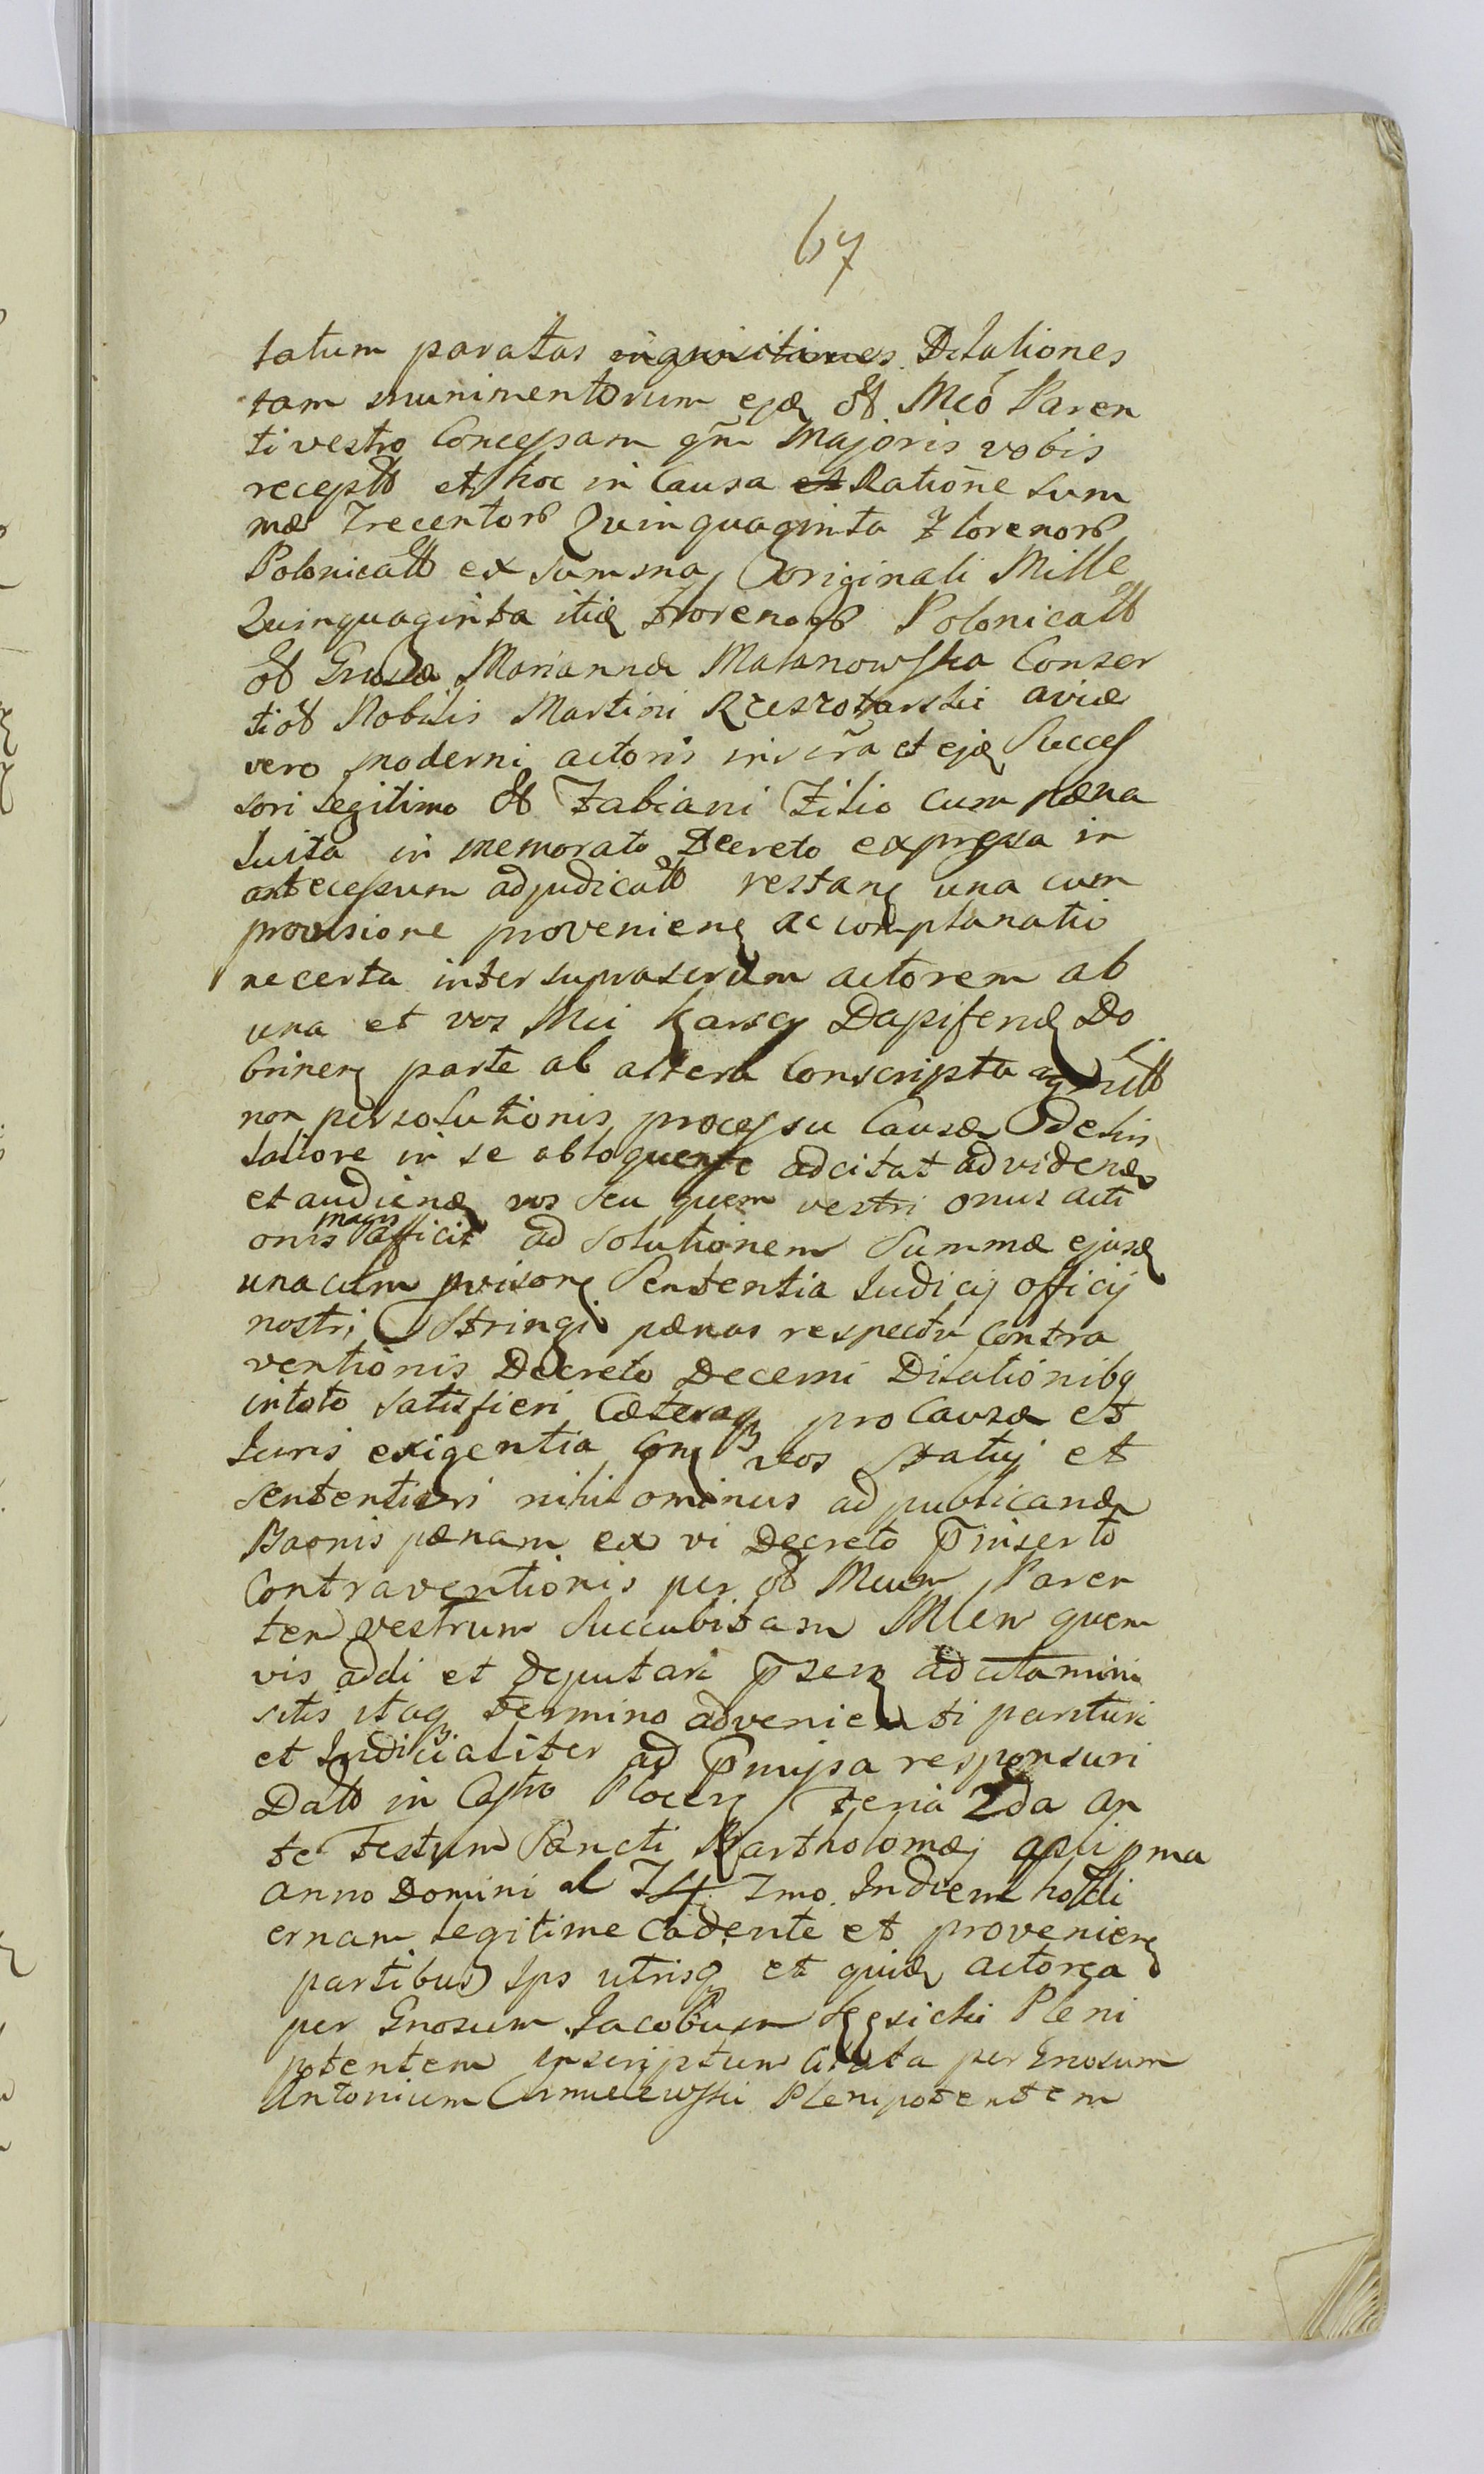 67
tatum paratas inquisitiones Dilationes
tam munimentorum ejq ol Mco Paren
ti vestro Concessam qm Majoris vobis
recepttt et hoc in Causa et Ratione Sum
mæ Trecentor Quinquaginta Florenor
Polonicatt ex summa originali Mille
Quinquaginta itiq Florenor Polonicatt
ol Gnosa Marianna Malanowska Conser
ti ol Nobilis Martini Rzeszotarski aviæ
vero moderni actoris inscra et ejq Succes
sori legitimo ol Fabiani Filio cum pæna
luita in memorato Decreto expressa in
antecessum adjudicatt restan una cum
provisione provenien ac complanatio
ne certa inter suprascrum actorem ab
una et vos Mci Karscy Dapiferid Do
brinen parte ab altera Conscripta
non persolutionis processu Causæ
latiore in se abloquente adcitat ad videnq
et audienq vos seu quem vestri onus acti
onis magis afficit ad solutionem Summæ ejusq
una cum Sententia Judicij officij
nostri Stringi pænas respectu Contra
ventionis Decreto Decerni Dilationibq
in toto satisfieri Cæteraq pro Causa et
Juris exigentia vos Statuj et
sententiari nihilominus ad publicanda
Baonis pænam ex vi Decreto p inserto
Contraventionis per ol Mcum Paren
tem vestrum Succubitam quem
vis addi et deputari p adcitamini
sitis itaq termino advenienti parituri
et Judicialiter ad pmissa responsuri
Datt in Castro Plocen feria 2da an
te Festum Sancti Bartholomæj apli pma
anno Domini al 74 Imo In diem hodi
ernam legitime cadente et provenien
partibus Ips utrisq et quid actorea
per Gnosum Jacobum Pleni
potentem inscriptum Citata per Gnosum
Antonium Plenipotentem